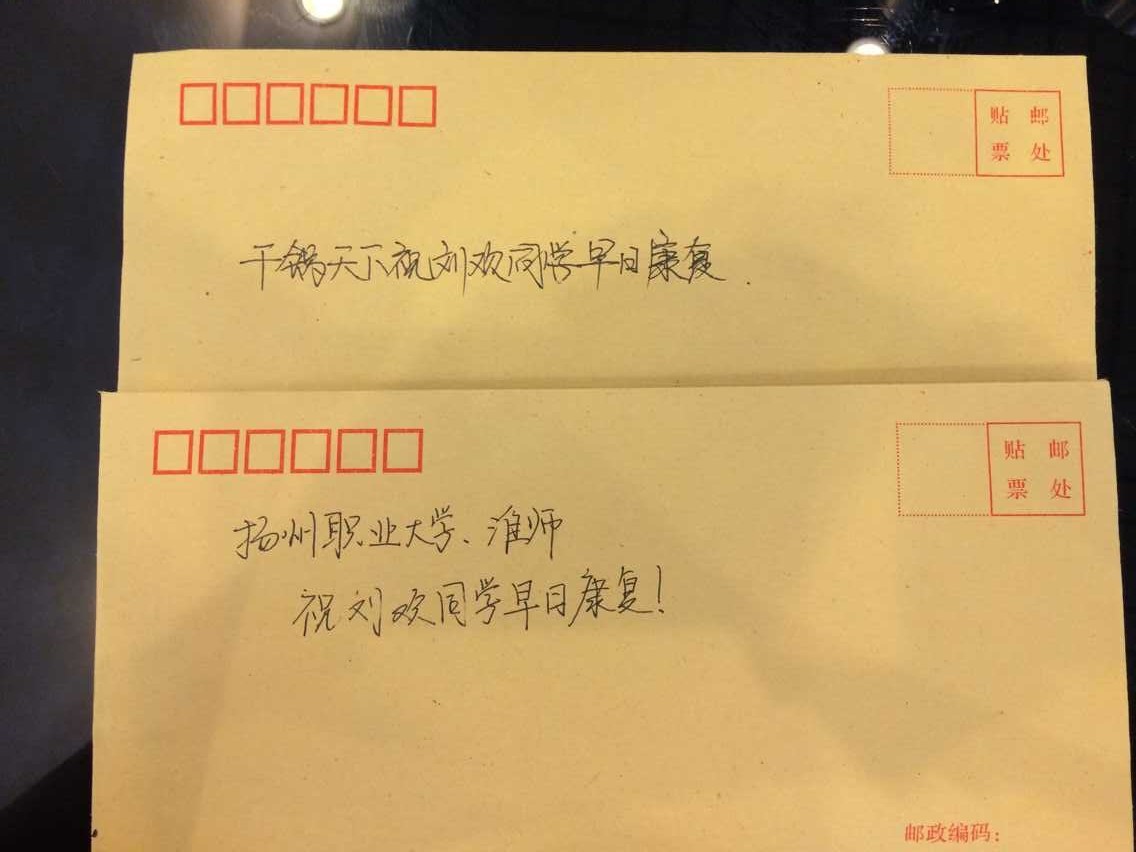 贴 邮
票 处
干锅天下祝刘欢同学早日康复.
贴 邮
票 处
扬州职业大学、淮师
祝刘欢同学早日康复!
邮政编码: